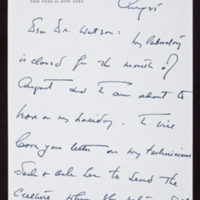 NEW YORK 21, NEW YORK
August
Dear Dr. Watson: my laboratory
is closed for the month of
August and I am about to
leave on my holiday. I will
leave your letter on my technicians
desk & ask her to send the
Culture when she